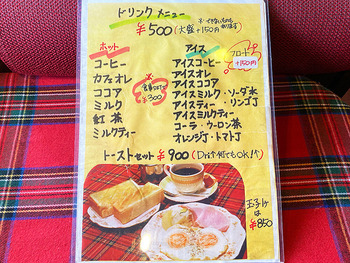 ドリンク メニュー
¥500 (大盛+150円)
ホット
コーヒー
カフェオレ
ココア
ミルク
紅茶
ミルクティー
¥300
アイス
アイスコーヒー
アイスオレ
アイスココア
アイスミルク・ソーダ水
アイスティー・リンゴJ
アイスミルクティー
コーラ・ウーロン茶
オレンジJ・トマトJ
フロート
+150円
トーストセット ¥900 (D何でもOK!)
玉子1ヶ
は
¥850